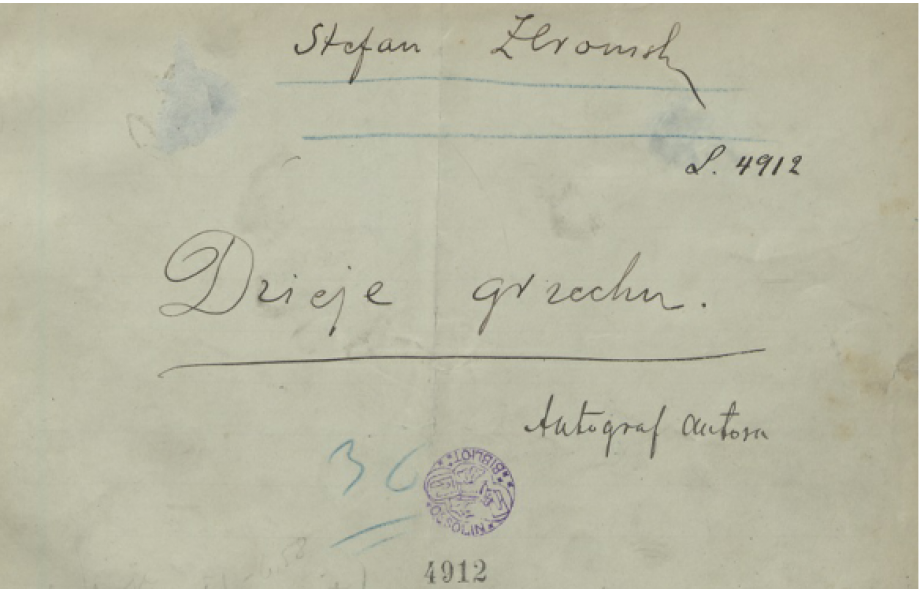 Stefan Żeromski
L. 4912
Dzieje grzechu.
Autograf autora
36
BIBLIOT. OSSOLIN.
4912